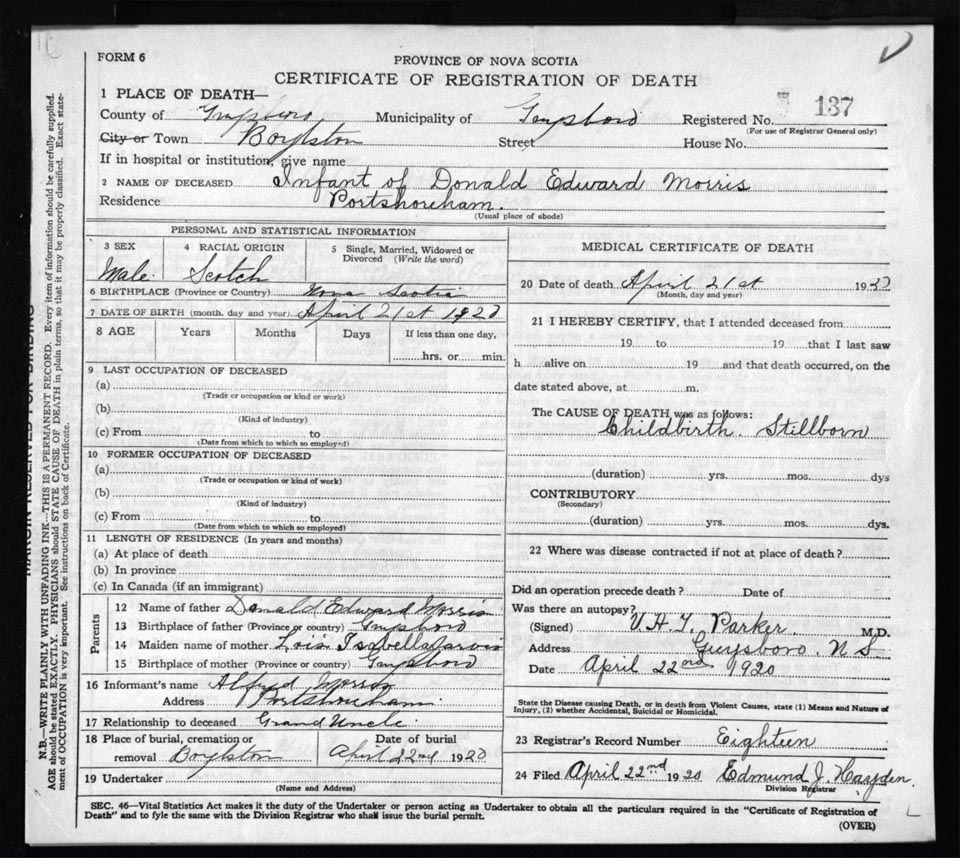 FORM 6
PROVINCE OF NOVA SCOTIA
CERTIFICATE OF REGISTRATION OF DEATH
1 PLACE OF DEATH—
County of Guysboro Municipality of Guysboro Registered No. 137
(For use of Registrar General only)
City or Town Boylston Street House No.
If in hospital or institution, give name
2 NAME OF DECEASED Infant of Donald Edward Morris
Residence Portshoreham.
(Usual place of abode)
PERSONAL AND STATISTICAL INFORMATION
3 SEX 4 RACIAL ORIGIN 5 Single, Married, Widowed or
Divorced (Write the word)
Male. Scotch
6 BIRTHPLACE (Province or Country) Nova Scotia
7 DATE OF BIRTH (month, day and year) April 21st 1920
8 AGE Years Months Days If less than one day,
hrs. or min.
9 LAST OCCUPATION OF DECEASED
(a)
(Trade or occupation or kind or work)
(b)
(Kind of industry)
(c) From to
(Date from which to which so employed)
10 FORMER OCCUPATION OF DECEASED
(a)
(Trade or occupation or kind of work)
(b)
(Kind of industry)
(c) From to
(Date from which to which so employed)
11 LENGTH OF RESIDENCE (In years and months)
(a) At place of death
(b) In province
(c) In Canada (if an immigrant)
Parents
12 Name of father Donald Edward Morris
13 Birthplace of father (Province or country) Guysboro
14 Maiden name of mother Lois Isabella
15 Birthplace of mother (Province or country) Guysboro
16 Informant's name Alfred Morris
Address Portshoreham
17 Relationship to deceased Grand Uncle
18 Place of burial, cremation or Date of burial
removal Boylston April 22nd 1920
19 Undertaker
(Name and Address)
MEDICAL CERTIFICATE OF DEATH
20 Date of death April 21st 1920
(Month, day and year)
21 I HEREBY CERTIFY, that I attended deceased from
19 to 19 that I last saw
h alive on 19 and that death occurred, on the
date stated above, at m.
The CAUSE OF DEATH was as follows:
Childbirth. Stillborn
(duration) yrs. mos. dys
CONTRIBUTORY
(Secondary)
(duration) yrs. mos. dys.
22 Where was disease contracted if not at place of death?
Did an operation precede death? Date of
Was there an autopsy?
(Signed) Parker. M.D.
Address Guysboro N S
Date April 22nd 1920
State the Disease causing Death, or in death from Violent Causes, state (1) Means and Nature of
Injury, (2) whether Accidental, Suicidal or Homicidal.
23 Registrar's Record Number Eighteen
24 Filed April 22nd 1920 Edmund J. Hayden
Division Registrar
SEC. 46—Vital Statistics Act makes it the duty of the Undertaker or person acting as Undertaker to obtain all the particulars required in the "Certificate of Registration of
Death" and to fyle the same with the Division Registrar who shall issue the burial permit.
(OVER)
MARGIN RESERVED FOR BINDING
N.B.—WRITE PLAINLY WITH UNFADING INK—THIS IS A PERMANENT RECORD. Every item of information should be carefully supplied.
AGE should be stated EXACTLY. PHYSICIANS should STATE CAUSE OF DEATH in plain terms, so that it may be properly classified. Exact state-
ment of OCCUPATION is very important. See instructions on back of Certificate.